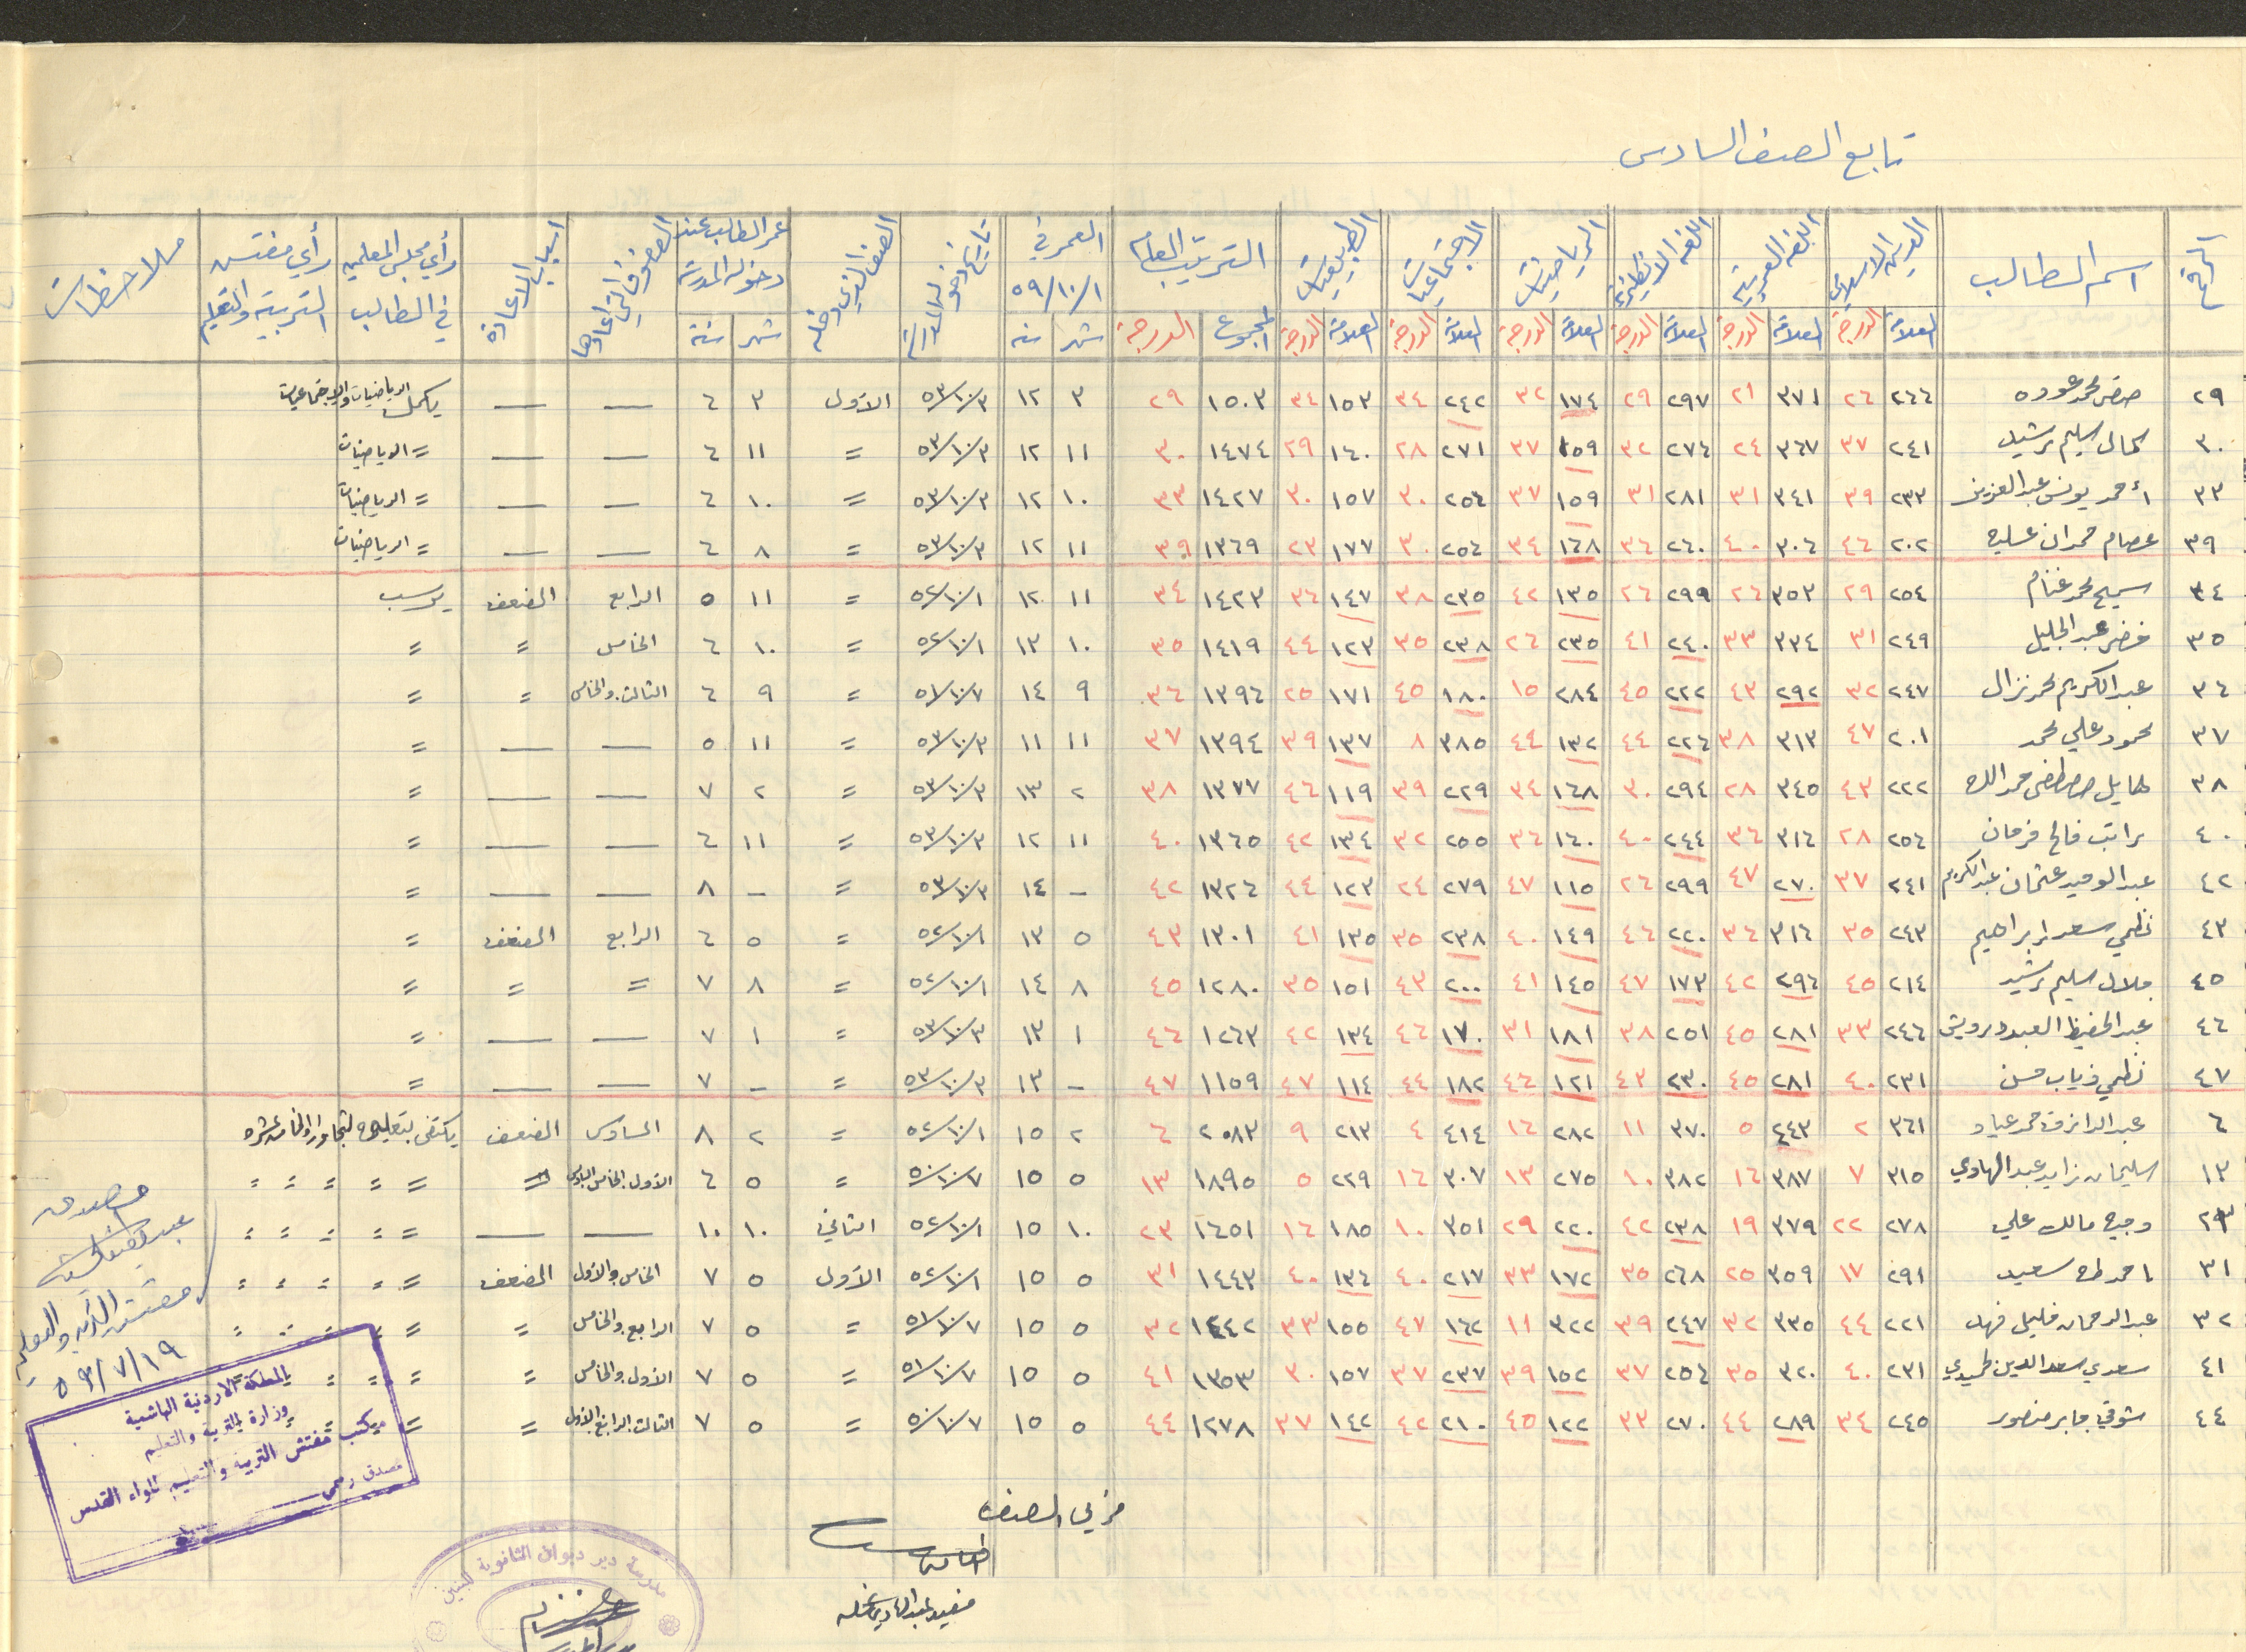 تابع الصف السادس
الرقم | اسم الطالب | الدين الاسلامي | اللغة العربية | اللغة الانكليزية | الرياضيات | الاجتماعيات | الطبيعيات | الترتيب العام | العمر في ٥٩/١٠/١ | تاريخ دخوله المدرسة | الصف الذي دخله | عمر الطالب عند دخوله المدرسة | الصفوف التي اعادها | اسباب الاعادة | رأي مجلس المعلمين في الطالب | رأي مفتش التربية والتعليم | ملاحظات
العلامة | الدرجة | العلامة | الدرجة | العلامة | الدرجة | العلامة | الدرجة | العلامة | الدرجة | العلامة | الدرجة | المجموع | الدرجة | شهر | سنة | شهر | سنة
٢٩ | محمد عوده | ٢٦٦ | ٢٦ | ٣٧١ | ٢١ | ٢٩٧ | ٢٩ | ١٧٤ | ٣٢ | ٢٤٢ | ٣٤ | ١٥٣ | ٣٤ | ١٥٠٣ | ٢٩ | ٣ | ١٢ | ٥٣/١٠/٣ | الأول | ٣ | ٦ | — | — | يكمل الرياضيات والاجتماعيات
٣٠ | كمال سليم رشيد | ٢٤١ | ٣٧ | ٣٦٧ | ٢٤ | ٢٧٦ | ٣٢ | ١٥٩ | ٣٧ | ٢٧١ | ٢٨ | ١٦٠ | ٢٩ | ١٤٧٤ | ٣٠ | ١١ | ١٢ | ٥٣/١٠/٣ | = | ١١ | ٦ | — | — | = الرياضيات
٣٣ | أحمد يونس عبد العزيز | ٢٣٣ | ٣٩ | ٣٤١ | ٣١ | ٢٨١ | ٣١ | ١٥٩ | ٣٧ | ٢٥٦ | ٣٠ | ١٥٧ | ٣٠ | ١٤٢٧ | ٣٣ | ١٠ | ١٢ | ٥٣/١٠/٣ | = | ١٠ | ٦ | — | — | = الرياضيات
٣٩ | عصام حمدان | ٢٠٢ | ٤٦ | ٣٠٦ | ٤٠ | ٢٦٠ | ٣٦ | ١٦٨ | ٣٤ | ٢٥٦ | ٣٠ | ١٧٧ | ٢٣ | ١٣٦٩ | ٣٩ | ١١ | ١٢ | ٥٣/١٠/٣ | = | ٨ | ٦ | — | — | = الرياضيات
٣٤ | سميح محمد غنام | ٢٥٤ | ٢٩ | ٣٥٣ | ٢٦ | ٢٩٩ | ٢٦ | ١٣٥ | ٤٢ | ٢٣٥ | ٣٨ | ١٤٧ | ٣٦ | ١٤٢٣ | ٣٤ | ١١ | ١٢ | ٥٢/١٠/١ | = | ١١ | ٥ | الرابع | الضعف | يرسب
٣٥ | خضر عبد الجليل | ٢٤٩ | ٣١ | ٣٣٤ | ٣٣ | ٢٤٠ | ٤١ | ٢٣٥ | ٢٦ | ٢٣٨ | ٣٥ | ١٢٣ | ٤٤ | ١٤١٩ | ٣٥ | ١٠ | ١٣ | ٥٢/١٠/١ | = | ١٠ | ٦ | الخامس | = | =
٣٦ | عبد الكريم محمد نزال | ٢٤٧ | ٣٢ | ٢٩٢ | ٤٣ | ٢٢٢ | ٤٥ | ٢٨٤ | ١٥ | ١٨٠ | ٤٥ | ١٧١ | ٢٥ | ١٣٩٦ | ٣٦ | ٩ | ١٤ | ٥١/١٠/٧ | = | ٩ | ٦ | الثالث والخامس | = | =
٣٧ | محمود علي محمد | ٢٠١ | ٤٧ | ٣١٣ | ٣٨ | ٢٢٦ | ٤٤ | ١٣٢ | ٤٤ | ٣٨٥ | ٨ | ١٣٧ | ٣٩ | ١٣٩٤ | ٣٧ | ١١ | ١١ | ٥٣/١٠/٣ | = | ١١ | ٥ | — | — | =
٣٨ | هايل مصطفى حمد الله | ٢٢٢ | ٤٣ | ٣٤٥ | ٢٨ | ٢٩٤ | ٣٠ | ١٦٨ | ٣٤ | ٢٢٩ | ٣٩ | ١١٩ | ٤٦ | ١٣٧٧ | ٣٨ | ٢ | ١٣ | ٥٣/١٠/٣ | = | ٢ | ٧ | — | — | =
٤٠ | راتب فالح فرحان | ٢٥٦ | ٢٨ | ٣١٦ | ٣٦ | ٢٤٤ | ٤٠ | ١٦٠ | ٣٦ | ٢٥٥ | ٣٢ | ١٣٤ | ٤٢ | ١٣٦٥ | ٤٠ | ١١ | ١٢ | ٥٣/١٠/٣ | = | ١١ | ٦ | — | — | =
٤٢ | عبد الوحيد عثمان عبد الكريم | ٢٤١ | ٣٧ | ٢٧٠ | ٤٧ | ٢٩٩ | ٢٦ | ١١٥ | ٤٧ | ٢٧٩ | ٢٤ | ١٢٣ | ٤٤ | ١٣٢٦ | ٤٢ | - | ١٤ | ٥٣/١٠/٣ | = | - | ٨ | — | — | =
٤٣ | نظمي سعد ابراهيم | ٢٤٣ | ٣٥ | ٣١٦ | ٣٦ | ٢٢٠ | ٤٦ | ١٤٩ | ٤٠ | ٢٣٨ | ٣٥ | ١٣٥ | ٤١ | ١٣٠١ | ٤٣ | ٥ | ١٣ | ٥٢/١٠/١ | = | ٥ | ٦ | الرابع | الضعف | =
٤٥ | جلال سليم رشيد | ٢١٤ | ٤٥ | ٢٩٦ | ٤٢ | ١٧٣ | ٤٧ | ١٤٥ | ٤١ | ٢٠٠ | ٤٣ | ١٥١ | ٣٥ | ١٢٨٠ | ٤٥ | ٨ | ١٤ | ٥٢/١٠/١ | = | ٨ | ٧ | = | = | =
٤٦ | عبد الحفيظ العبد درويش | ٢٤٦ | ٣٣ | ٢٨١ | ٤٥ | ٢٥١ | ٣٨ | ١٨١ | ٣١ | ١٧٠ | ٤٦ | ١٣٤ | ٤٢ | ١٢٦٣ | ٤٦ | ١ | ١٣ | ٥٣/١٠/٣ | = | ١ | ٧ | — | — | =
٤٧ | نظمي ذياب حسن | ٢٣١ | ٤٠ | ٢٨١ | ٤٥ | ٢٣٠ | ٤٣ | ١٢١ | ٤٦ | ١٨٢ | ٤٤ | ١١٤ | ٤٧ | ١١٥٩ | ٤٧ | - | ١٣ | ٥٣/١٠/٣ | = | - | ٧ | — | — | =
٦ | عبد الرازق حمد عياد | ٣٦١ | ٢ | ٤٤٣ | ٥ | ٣٧٠ | ١١ | ٢٨٢ | ١٦ | ٤١٤ | ٤ | ٢١٣ | ٩ | ٢٠٨٣ | ٦ | ٢ | ١٥ | ٥٢/١٠/١ | = | ٢ | ٨ | السادس | الضعف | يكتفى بتعليمه لتجاوزه الخامسة عشره
١٣ | سليمان زايد عبد الهادي | ٣١٥ | ٧ | ٣٨٧ | ١٦ | ٣٨٢ | ١٠ | ٢٧٥ | ١٣ | ٣٠٧ | ١٦ | ٢٢٩ | ٥ | ١٨٩٥ | ١٣ | ٥ | ١٥ | ٥٠/١٠/٧ | = | ٥ | ٦ | الأول الخامس السادس | = | = = = = =
٢٣ | وجيه مالك علي | ٢٧٨ | ٢٢ | ٣٧٩ | ١٩ | ٢٣٨ | ٤٢ | ٢٢٠ | ٢٩ | ٣٥١ | ١٠ | ١٨٥ | ١٦ | ١٦٥١ | ٢٣ | ١٠ | ١٥ | ٥٢/١٠/١ | الثاني | ١٠ | ١٠ | — | — | = = = = =
٣١ | احمد طه سعيد | ٢٩١ | ١٧ | ٣٥٩ | ٢٥ | ٢٦٨ | ٣٥ | ١٧٢ | ٣٣ | ٢١٧ | ٤٠ | ١٣٦ | ٤٠ | ١٤٤٣ | ٣١ | ٥ | ١٥ | ٥٢/١٠/١ | الأول | ٥ | ٧ | الخامس والأول | الضعف | = = = = =
٣٢ | عبد الرحمان خليل فهد | ٢٢١ | ٤٤ | ٣٣٥ | ٣٢ | ٢٤٧ | ٣٩ | ٣٢٢ | ١١ | ١٦٢ | ٤٧ | ١٥٥ | ٣٣ | ١٤٤٢ | ٣٢ | ٥ | ١٥ | ٥١/١٠/٧ | = | ٥ | ٧ | الرابع والخامس | = | = = = = =
٤١ | سعدي سعد الدين | ٢٣١ | ٤٠ | ٣٢٠ | ٣٥ | ٢٥٦ | ٣٧ | ١٥٢ | ٣٩ | ٢٣٧ | ٣٧ | ١٥٧ | ٣٠ | ١٣٥٣ | ٤١ | ٥ | ١٥ | ٥١/١٠/٧ | = | ٥ | ٧ | الأول والخامس | = | = = = =
٤٤ | شوقي جابر منصور | ٢٤٥ | ٣٤ | ٢٨٩ | ٤٤ | ٢٧٠ | ٣٣ | ١٢٢ | ٤٥ | ٢١٠ | ٤٢ | ١٤٢ | ٣٧ | ١٢٧٨ | ٤٤ | ٥ | ١٥ | ٥٠/١٠/٧ | = | ٥ | ٧ | الثالث الرابع الأول | = | = =
مفتش التربية والتعليم
٥٩/٧/١٩
المملكة الاردنية الهاشمية
وزارة التربية والتعليم
مكتب مفتش التربية والتعليم للواء القدس
مصدق رسمي
مربي الصف
مدرسة دير دبوان الثانوية للبنين